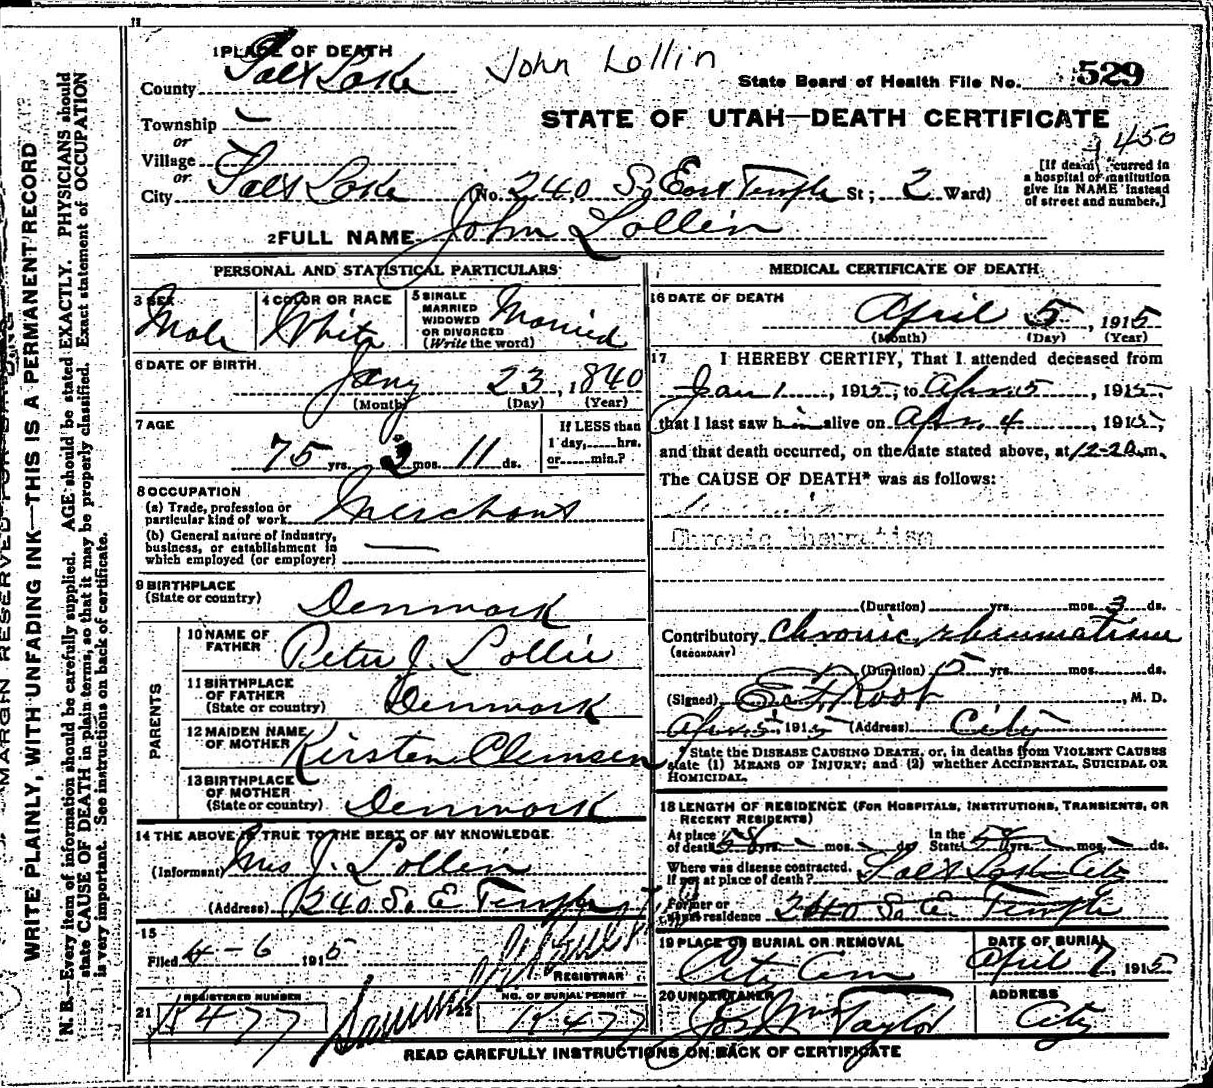 John Lollin
1 PLACE OF DEATH
County Salt Lake
State Board of Health File No. 529
STATE OF UTAH—DEATH CERTIFICATE
450
Township
or
Village
or
City Salt Lake (No. 240 So East Temple St; 2 Ward)
[If death occurred in
a hospital or institution
give its NAME instead
of street and number.]
2 FULL NAME John Lollin
PERSONAL AND STATISTICAL PARTICULARS
3 SEX Male
4 COLOR OR RACE White
5 SINGLE
MARRIED
WIDOWED
OR DIVORCED
(Write the word)
Married
6 DATE OF BIRTH
Jany 23, 1840
(Month) (Day) (Year)
7 AGE
75 yrs. 2 mos. 11 ds.
If LESS than
1 day,......hrs.
or......min.?
8 OCCUPATION
(a) Trade, profession or
particular kind of work Merchant
(b) General nature of Industry,
business, or establishment in
which employed (or employer)
9 BIRTHPLACE
(State or country) Denmark
PARENTS
10 NAME OF
FATHER Peter J. Lollin
11 BIRTHPLACE
OF FATHER
(State or country) Denmark
12 MAIDEN NAME
OF MOTHER Kirsten Clemsen
13 BIRTHPLACE
OF MOTHER
(State or country) Denmark
14 THE ABOVE IS TRUE TO THE BEST OF MY KNOWLEDGE.
(Informant) Mrs J. Lollin
(Address) 240 So. E Temple
15
Filed 4-6 1915
REGISTRAR
REGISTERED NUMBER
21 K 477
NO. OF BURIAL PERMIT
22 K 477
MEDICAL CERTIFICATE OF DEATH
16 DATE OF DEATH
April 5, 1915
(Month) (Day) (Year)
17 I HEREBY CERTIFY, That I attended deceased from
Jan 1, 1915, to Apr. 5, 1915,
that I last saw him alive on Apr. 4, 1915,
and that death occurred, on the date stated above, at 12-20 m.
The CAUSE OF DEATH* was as follows:
Chronic Rheumatism
(Duration) yrs. mos. 3 ds.
Contributory Chronic rheumatism
(SECONDARY)
(Duration) 15 yrs. mos. ds.
(Signed) E. F. Root, M. D.
Apr. 5, 1915 (Address) City
* State the DISEASE CAUSING DEATH, or, in deaths from VIOLENT CAUSES
state (1) MEANS OF INJURY; and (2) whether ACCIDENTAL, SUICIDAL OR
HOMICIDAL.
18 LENGTH OF RESIDENCE (FOR HOSPITALS, INSTITUTIONS, TRANSIENTS, OR
RECENT RESIDENTS)
At place
of death 58 yrs. mos. ds.
In the
State yrs. mos. ds.
Where was disease contracted,
If not at place of death? Salt Lake City
Former or
usual residence 240 So. E. Temple
19 PLACE OF BURIAL OR REMOVAL
City Cem
DATE OF BURIAL
April 7, 1915
20 UNDERTAKER
Jos Wm Taylor
ADDRESS
City
READ CAREFULLY INSTRUCTIONS ON BACK OF CERTIFICATE
MARGIN RESERVED FOR BINDING
WRITE PLAINLY, WITH UNFADING INK—THIS IS A PERMANENT RECORD
N. B.—Every item of information should be carefully supplied. AGE should be stated EXACTLY. PHYSICIANS should
state CAUSE OF DEATH in plain terms, so that it may be properly classified. Exact statement of OCCUPATION
is very important. See instructions on back of certificate.